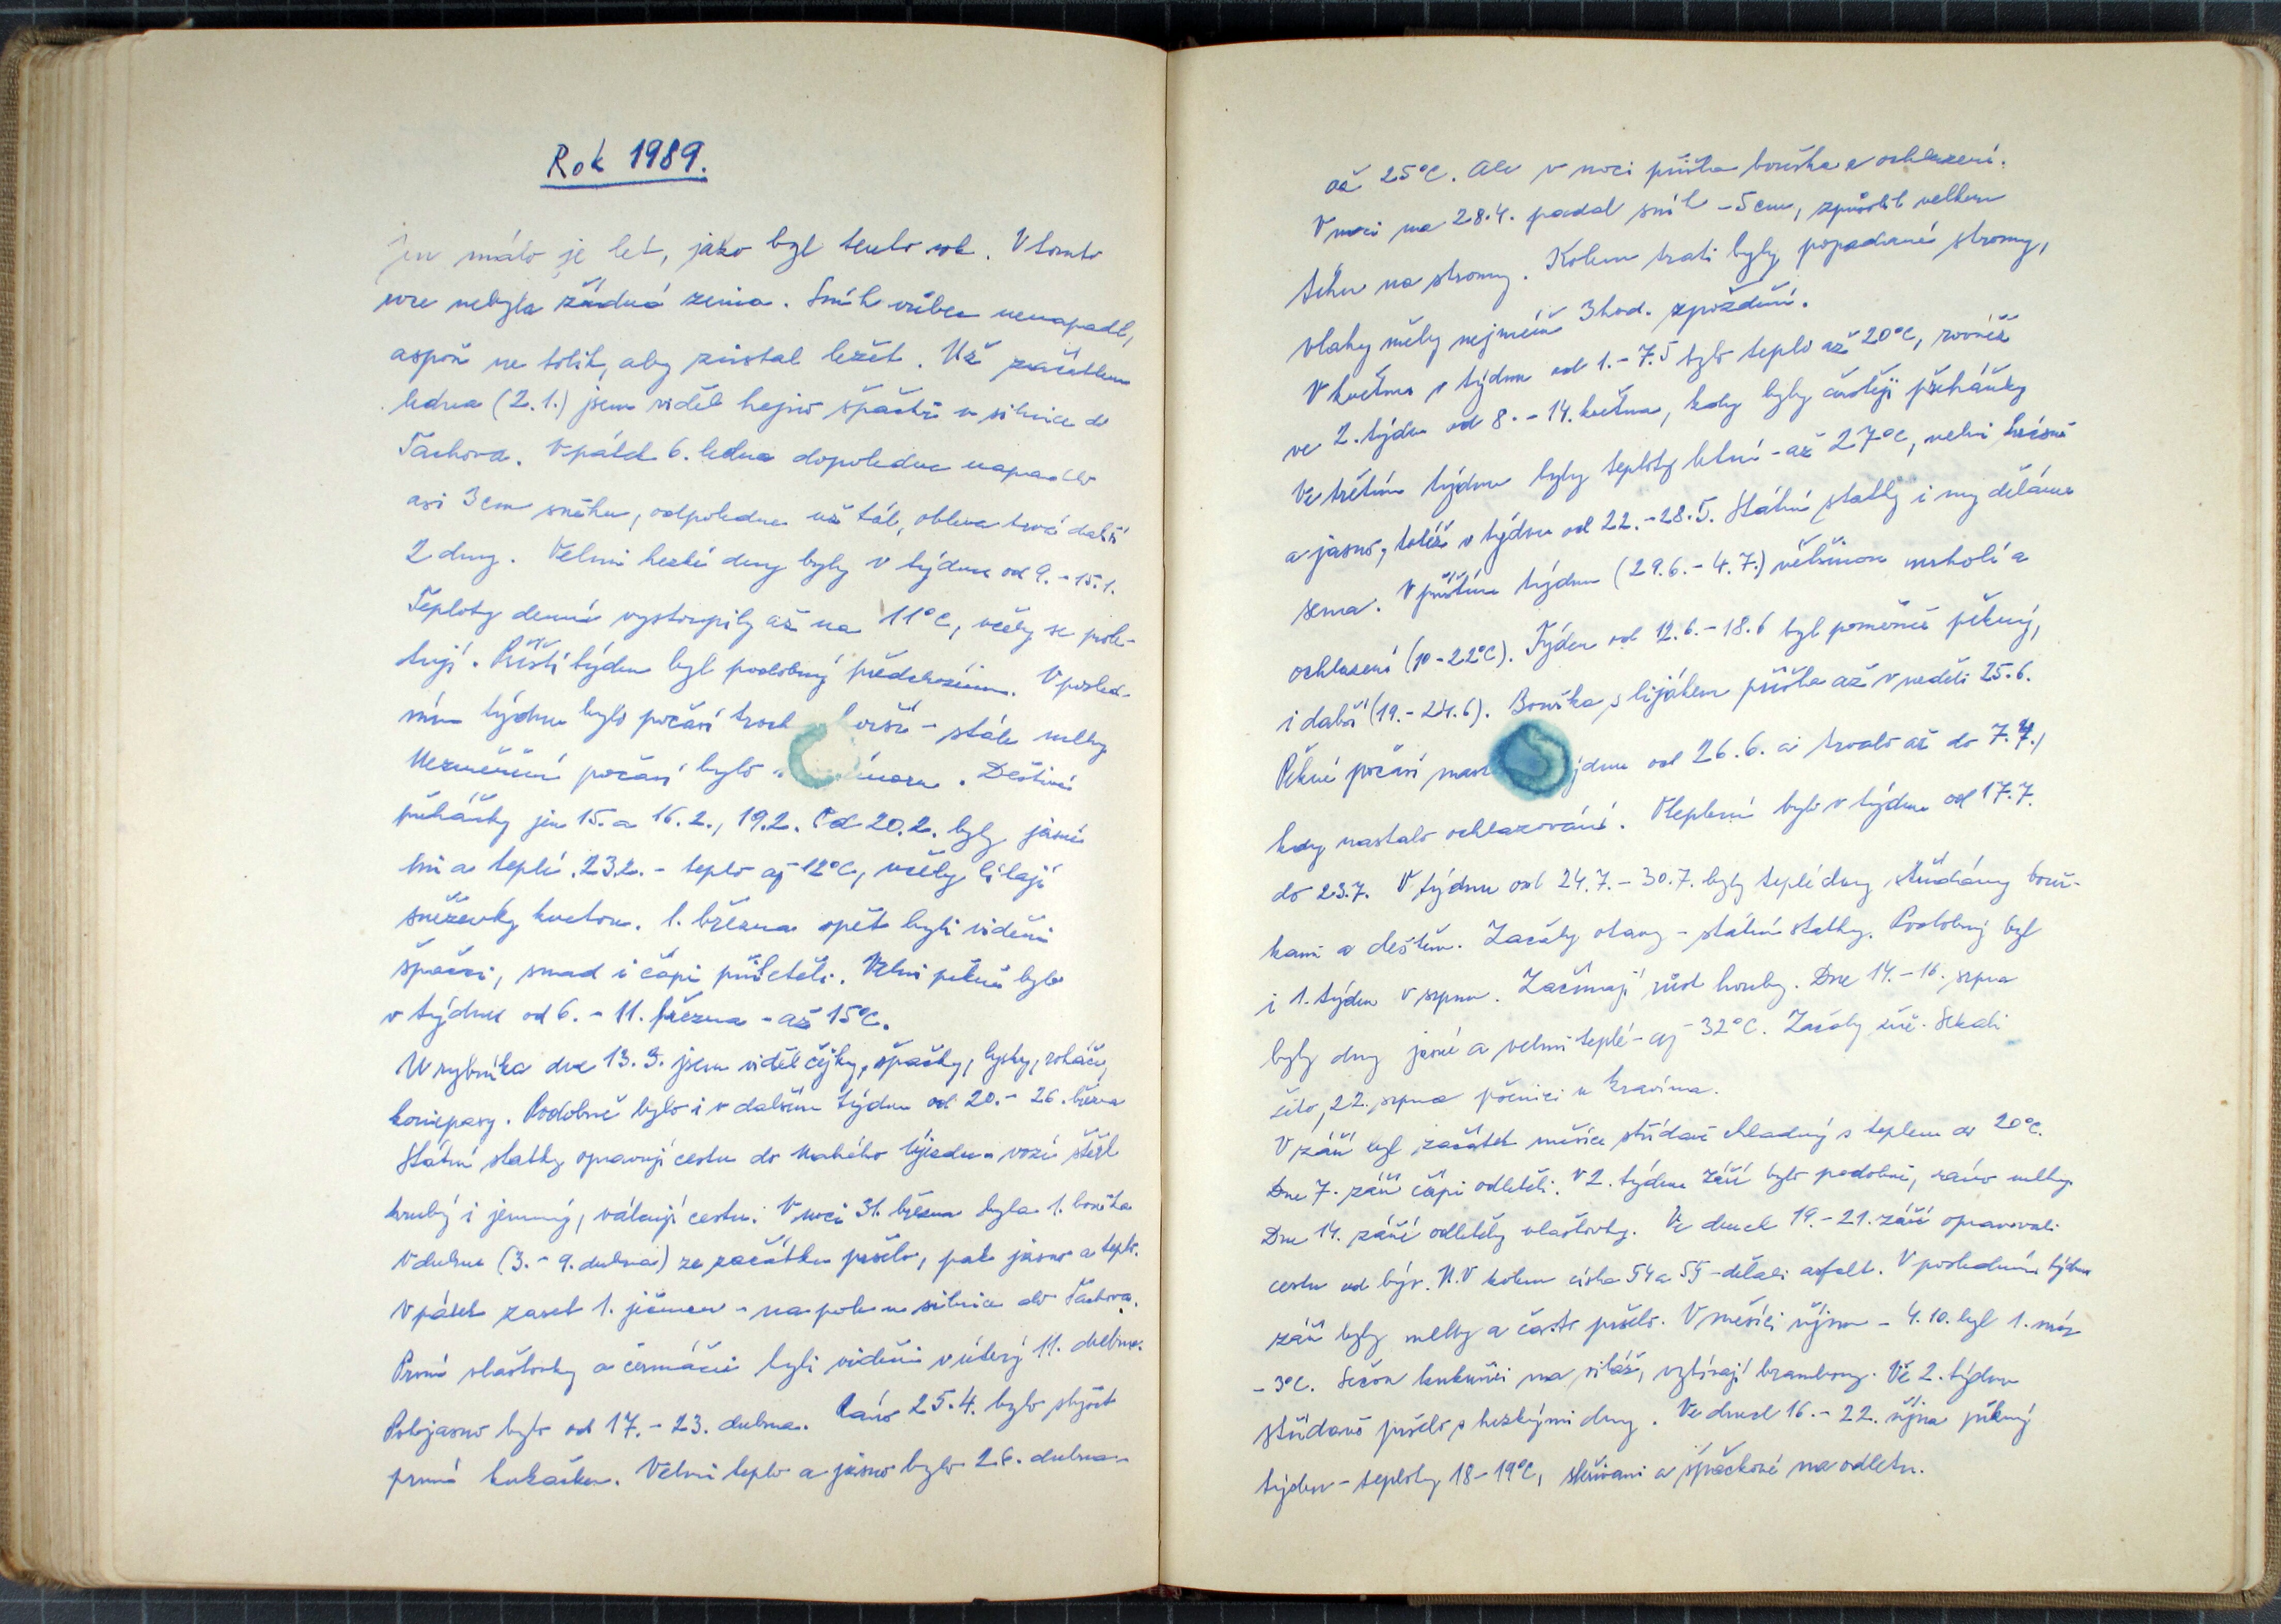 Rok 1989.
Jen málo je let, jako byl tento rok. V tomto
roce nebyla žádná zima. Sníh vůbec nenapadl,
aspoň ne tolik, aby zůstal ležet. Už začátkem
ledna (2.1.) jsem viděl hejno špačků u silnice do
Tachova. V pátek 6. ledna dopoledne napadlo
asi 3 cm sněhu, odpoledne už tál, obleva trvá další
2 dny. Velmi hezké dny byly v týdnu od 9. - 15.1.
Teploty denní vystoupily až na 11°C, včely se prole-
tují. Příští týden byl podobný předchozímu. V posled-
ním týdnu bylo počasí troch horší - stále mlhy
Nezměněné počasí bylo únoru. Deštivé
přeháňky jen 15. a 16.2., 19.2. Od 20.2. byly jasné
dni a teplé. 23.2. - teplo až 12°C, včely lítají
sněženky kvetou. 1. března opět byli viděni
špačci, snad i čápi přiletěli. Velmi pěkně bylo
v týdnu od 6. - 11. března - až 15°C.
U rybníka dne 13.3. jsem viděl čejky, špačky, lysky, roháče,
konipasy. Podobně bylo i v dalším týdnu od 20. - 26. března
Státní statky opravují cestu do Nahého Újezdce - vozí štěrk
hrubý i jemný, válcují cestu. V noci 31. března byla 1. bouřka
V dubnu (3. - 9. dubna) ze začátku pršelo, pak jasno a teplo.
V pátek zaset 1. ječmen - na poli u silnice do Tachova.
První vlaštovky a čermáčci byli viděni v úterý 11. dubna.
Polojasno bylo od 17. - 23. dubna. Ráno 25.4. bylo slyšet
první kukačku. Velmi teplo a jasno bylo 26. dubna -
až 25°C. Ale v noci přišla bouřka a ochlazení.
V noci na 28.4. padal sníh - 5 cm, způsobil velkou
tíhu na stromy. Kolem trati byly popadané stromy,
vlaky měly nejméně 3 hod. zpoždění.
V květnu v týdnu od 1. - 7.5 bylo teplo až 20°C, rovněž
ve 2. týdnu od 8. - 14. května, kdy byly častěji přeháňky
Ve třetím týdnu byly teploty letní - až 27°C, velmi krásné
a jasno, totéž v týdnu od 22. - 28.5. Státní statky i my děláme
sena. V příštím týdnu (29.6. - 4.7.) většinou mrholí a
ochlazení (10 - 22°C). Týden od 12.6. - 18.6 byl poměrně pěkný,
i další (19. - 24.6). Bouřka s lijákem přišla až v neděli 25.6.
Pěkné počasí nast jdnu od 26.6. a trvalo až do 7.7.,
kdy nastalo ochlazování. Oteplení bylo v týdnu od 17.7.
do 23.7. V týdnu od 24.7. - 30.7. byly teplé dny střídány bouř-
kami a deštěm. Začaly otavy - státní statky. Podobný byl
i 1. týden v srpnu. Začínají růst houby. Dne 14. - 16. srpna
byly dny jasné a velmi teplé - až 32°C. Začaly žně. Sekali
žito, 22. srpna pšenici u kravína.
V září byl začátek měsíce střídavě chladný s teplem do 20°C.
Dne 7. září čápi odletěli. V 2. týdnu září bylo podobně, ráno mlhy.
Dne 14. září odletěly vlaštovky. Ve dnech 19. - 21. září opravovali
cestu od býv. N.V kolem čísla 54 a 55 - dělali asfalt. V posledním týdnu
září byly mlhy a často pršelo. V měsíci říjnu - 4.10. byl 1. mráz
-3°C. Sečou kukuřici na siláž, vybírají brambory. Ve 2. týdnu
střídavě pršelo s hezkými dny. Ve dnech 16. - 22. října pěkný
týden - teploty 18 - 19°C, skřivani a špačkové na odletu.